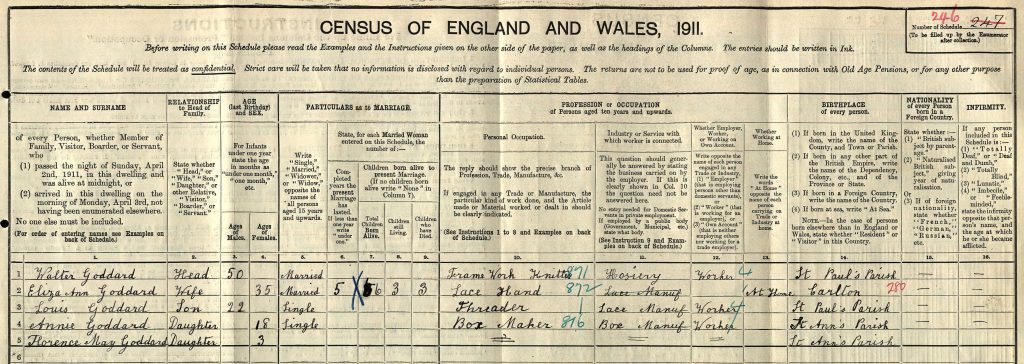 CENSUS OF ENGLAND AND WALES, 1911.
246 247
Number of Schedule
(To be filled up by the Enumerator after collection.)
Before writing on this Schedule please read the Examples and the Instructions given on the other side of the paper, as well as the headings of the Columns. The entries should be written in Ink.
The contents of the Schedule will be treated as confidential. Strict care will be taken that no information is disclosed with regard to individual persons. The returns are not to be used for proof of age, as in connection with Old Age Pensions, or for any other purpose
than the preparation of Statistical Tables.
NAME AND SURNAME
of every Person, whether Member of Family, Visitor, Boarder, or Servant, who
(1) passed the night of Sunday, April 2nd, 1911, in this dwelling and was alive at midnight, or
(2) arrived in this dwelling on the morning of Monday, April 3rd, not having been enumerated elsewhere.
No one else must be included.
(For order of entering names see Examples on back of Schedule.)
1.
RELATIONSHIP to Head of Family.
State whether "Head," or "Wife," "Son," "Daughter," or other Relative, "Visitor," "Boarder," or "Servant."
2.
AGE (last Birthday) and SEX.
For Infants under one year state the age in months as "under one month," "one month," etc.
Ages of Males.
3.
Ages of Females.
4.
PARTICULARS as to MARRIAGE.
Write "Single," "Married," "Widower," or "Widow," opposite the names of all persons aged 15 years and upwards.
5.
State, for each Married Woman entered on this Schedule, the number of:—
Completed years the present Marriage has lasted. If less than one year write "under one."
6.
Children born alive to present Marriage. (If no children born alive write "None" in Column 7).
Total Children Born Alive.
7.
Children still Living.
8.
Children who have Died.
9.
PROFESSION or OCCUPATION
of Persons aged ten years and upwards.
Personal Occupation.
The reply should show the precise branch of Profession, Trade, Manufacture, &c.
If engaged in any Trade or Manufacture, the particular kind of work done, and the Article made or Material worked or dealt in should be clearly indicated.
(See Instructions 1 to 8 and Examples on back of Schedule.)
10.
Industry or Service with which worker is connected.
This question should generally be answered by stating the business carried on by the employer. If this is clearly shown in Col. 10 the question need not be answered here.
No entry needed for Domestic Servants in private employment. If employed by a public body (Government, Municipal, etc.) state what body.
(See Instruction 9 and Examples on back of Schedule.)
11.
Whether Employer, Worker, or Working on Own Account.
Write opposite the name of each person engaged in any Trade or Industry, (1) "Employer" (that is employing persons other than domestic servants), or (2) "Worker" (that is working for an employer), or (3) "Own Account" (that is neither employing others nor working for a trade employer).
12.
Whether Working at Home.
Write the words "At Home" opposite the name of each person carrying on Trade or Industry at home.
13.
BIRTHPLACE
of every person.
(1) If born in the United Kingdom, write the name of the County, and Town or Parish.
(2) If born in any other part of the British Empire, write the name of the Dependency, Colony, etc., and of the Province or State.
(3) If born in a Foreign Country, write the name of the Country.
(4) If born at sea, write "At Sea."
NOTE.—In the case of persons born elsewhere than in England or Wales, state whether "Resident" or "Visitor" in this Country.
14.
NATIONALITY
of every Person born in a Foreign Country.
State whether:—
(1) "British subject by parentage."
(2) "Naturalised British subject," giving year of naturalisation.
Or
(3) If of foreign nationality, state whether "French," "German," "Russian," etc.
15
INFIRMITY.
If any person included in this Schedule is:—
(1) "Totally Deaf," or "Deaf and Dumb,"
(2) "Totally Blind,"
(3) "Lunatic,"
(4) "Imbecile," or "Feeble-minded,"
state the infirmity opposite that person's name, and the age at which he or she became afflicted.
16.
1 Walter Goddard Head 50 Married Frame Work Knitter 871 Hosiery Worker 4 St Paul's Parish — —
2 Eliza Ann Goddard Wife 35 Married 5 6 3 3 Lace Hand 872 Lace Manuf At Home Carlton 280 — —
3 Louis Goddard Son 22 Single Threader Lace Manuf Worker St Paul's Parish — —
4 Annie Goddard Daughter 18 Single Box Maker 816 Box Manuf Worker St Ann's Parish — —
5 Florence May Goddard Daughter 3 St Ann's Parish
6